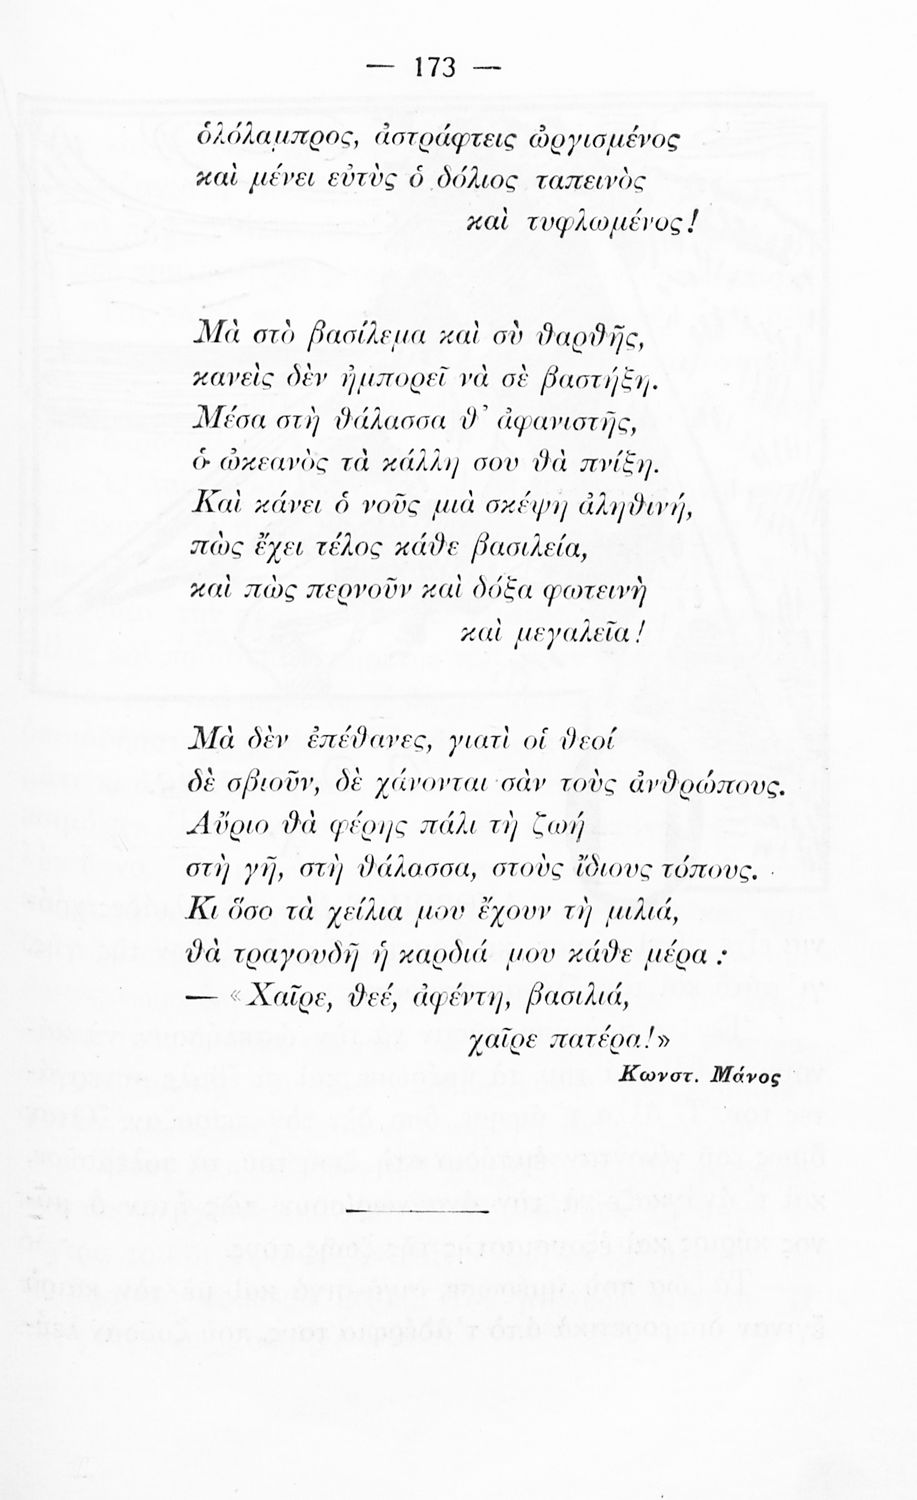 — 173 —
ὁλόλαμπρος, ἀστράφτεις ὠργισμένος
καὶ μένει εὐτὺς ὁ δόλιος ταπεινὸς
καὶ τυφλωμένος!
Μὰ στὸ βασίλεμα καὶ σὺ θαρθῆς,
κανεὶς δὲν ἠμπορεῖ νὰ σὲ βαστήξῃ.
Μέσα στὴ θάλασσα θ’ ἀφανιστῆς,
ὁ ὠκεανὸς τὰ κάλλη σου θὰ πνίξῃ.
Καὶ κάνει ὁ νοῦς μιὰ σκέψη ἀληθινή,
πὼς ἔχει τέλος κάθε βασιλεία,
καὶ πὼς περνοῦν καὶ δόξα φωτεινὴ
καὶ μεγαλεῖα!
Μὰ δὲν ἐπέθανες, γιατὶ οἱ θεοί
δὲ σβιοῦν, δὲ χάνονται σὰν τοὺς ἀνθρώπους.
Αὔριο θὰ φέρῃς πάλι τὴ ζωή
στὴ γῆ, στὴ θάλασσα, στοὺς ἴδιους τόπους.
Κι ὅσο τὰ χείλια μου ἔχουν τὴ μιλιά,
θὰ τραγουδῆ ἡ καρδιά μου κάθε μέρα :
— «Χαῖρε, θεέ, ἀφέντη, βασιλιά,
χαῖρε πατέρα!»
Κωνστ. Μάνος